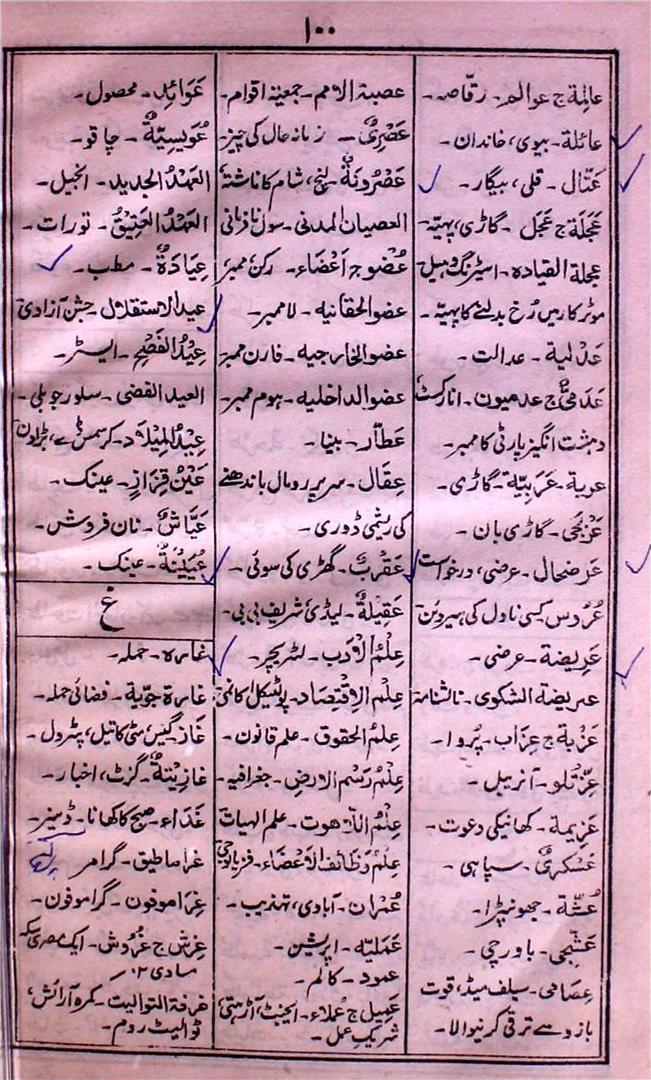 ۱۰۰
عالِمة ج عوالم۔ رقّاصہ۔
عائلة۔ بیوی، خاندان۔
عَتَّال۔ قلی، بیگار۔
عَجَلَة ج عَجَل۔ گاڑی، پہیّہ۔
عجلة القیادہ۔ اسٹرنگ وہیل۔
موٹر کار میں رُخ بدلنے کا پہیّہ۔
عَدْلیة۔ عدالت۔
عَدَمِیٌّ ج عدمیون۔ انارکسٹ
دہشت انگیز پارٹی کا ممبر۔
عربة۔ عَرَبِیَّة۔ گاڑی۔
عَرْبَجِی۔ گاڑی بان۔
عَرضحال۔ عرضی، درخواست
عُرُوس کسی ناول کی ہیروئن
عَرِیضة۔ عرضی۔
عریضة الشکوی۔ نالشنامہ
عَزْبة ج عِزَاب۔ پُروا۔
عِزَّتْلو۔ آنریبل۔
عَزِیمة۔ کھانیکی دعوت۔
عَسْکَرِیٌّ۔ سپاہی۔
عُشَّة۔ جھونپڑا۔
عَشِّجِی۔ باورچی۔
عِصَامِی۔ سیلف میڈ، قوت
بازو سے ترقی کرنیوالا۔
عصبة الامم۔ جمعیّة اقوام۔
عَصْرِیٌّ۔ زمانہ حال کی چیز
عَصْرُونَةٌ۔ لنچ، شام کا ناشتہ
العصیان المدنی۔ سول نافرمانی
عُضْو ج اَعْضَاء۔ رکن، ممبر
عضو الحقانیہ۔ لا ممبر۔
عضو الخارجیہ۔ فارن ممبر
عضو الداخلیہ۔ ہوم ممبر۔
عَطَّار۔ بنیا۔
عِقَال۔ سر پر رومال باندھنے
کی ریشمی ڈوری۔
عَقْرَبٌ۔ گھڑی کی سوئی۔
عَقِیلَةٌ۔ لیڈی، شریف بی بی۔
عِلْمُ الْاَدَب۔ لٹریچر۔
عِلْمُ الاِقْتِصَاد۔ پولٹیکل اکانمی
عِلْمُ الحقوق۔ علم قانون۔
عِلْمُ رَسْمِ الارض۔ جغرافیہ۔
عِلْمُ اللَّاھوت۔ علم الٰہیات
عِلْمُ وَظَائف الاَعْضَاء۔ فزیالوجی
عُمْرَان۔ آبادی، تہذیب۔
عَمَلیّہ۔ اپریشن۔
عمود۔ کالم۔
عَمِیل ج عُمَلاء۔ ایجنٹ، آڑہتی،
شریک عمل۔
عَوَائِد۔ محصول۔
عُوَیسِیَّةٌ۔ چاقو۔
العَہْدُ الجدید۔ انجیل۔
العَہْدُ العَتِیْقُ۔ تورات۔
عِیَادَةٌ۔ مطب۔
عید الاستقلال۔ جشن آزادی
عِیْدُ الفَصْحِ۔ ایسٹر۔
العید الفضی۔ سلور جوبلی۔
عِیْدُ المِیْلَاد۔ کرسمس ڈے، بڑادن
عَیْنُ قِزَازٍ۔ عینک۔
عَیَّاشٌ۔ نان فروش۔
عُیَیْنَةٌ۔ عینک۔
غ
غارہ۔ حملہ۔
غارة جوّیة۔ فضائی حملہ۔
غَاز گیس، مٹی کا تیل، پٹرول۔
غازِیْتَةٌ۔ گزٹ، اخبار۔
غَدَاء۔ صبح کا کھانا۔ ڈینر۔
غراماطیق۔ گرامر
غِرَاموفون۔ گراموفون۔
غِرْش ج غُرُوش۔ ایک مصری سکہ
مساوی ۲؍
غرفة التوالیت۔ کمرہ آرائش،
ٹوالیٹ روم۔